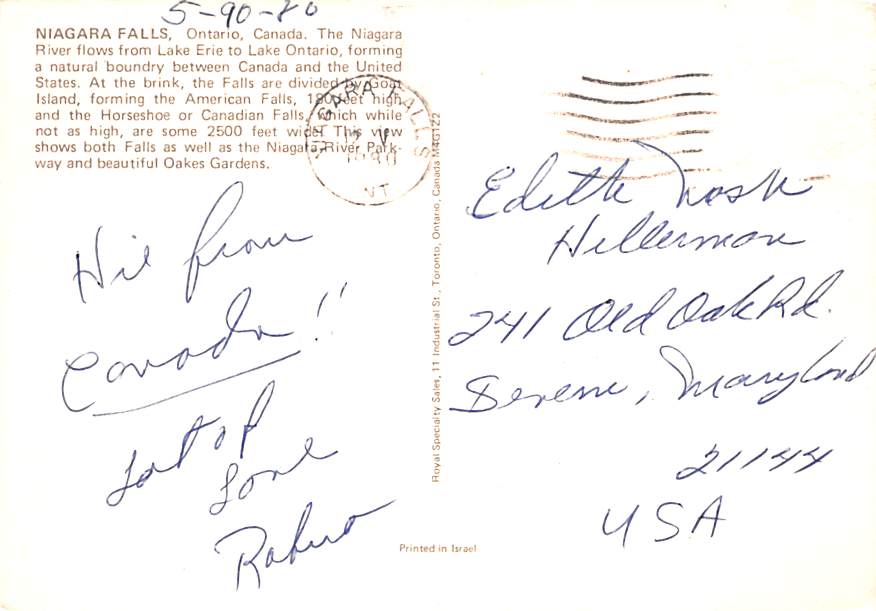 5-90-80
NIAGARA FALLS, Ontario, Canada. The Niagara
River flows from Lake Erie to Lake Ontario, forming
a natural boundry between Canada and the United
States. At the brink, the Falls are divided by Goat
Island, forming the American Falls, 180 feet high
and the Horseshoe or Canadian Falls, which while
not as high, are some 2500 feet wide. This view
shows both Falls as well as the Niagara River Park-
way and beautiful Oakes Gardens.
NIAGARA FALLS
Royal Specialty Sales, 11 Industrial St., Toronto, Ontario, Canada M4G1Z2
Hi from
Canada!!
Lot of
Love
Edith
Hellerman
241 Old Oak Rd.
Severn, Maryland
21144
USA
Printed in Israel